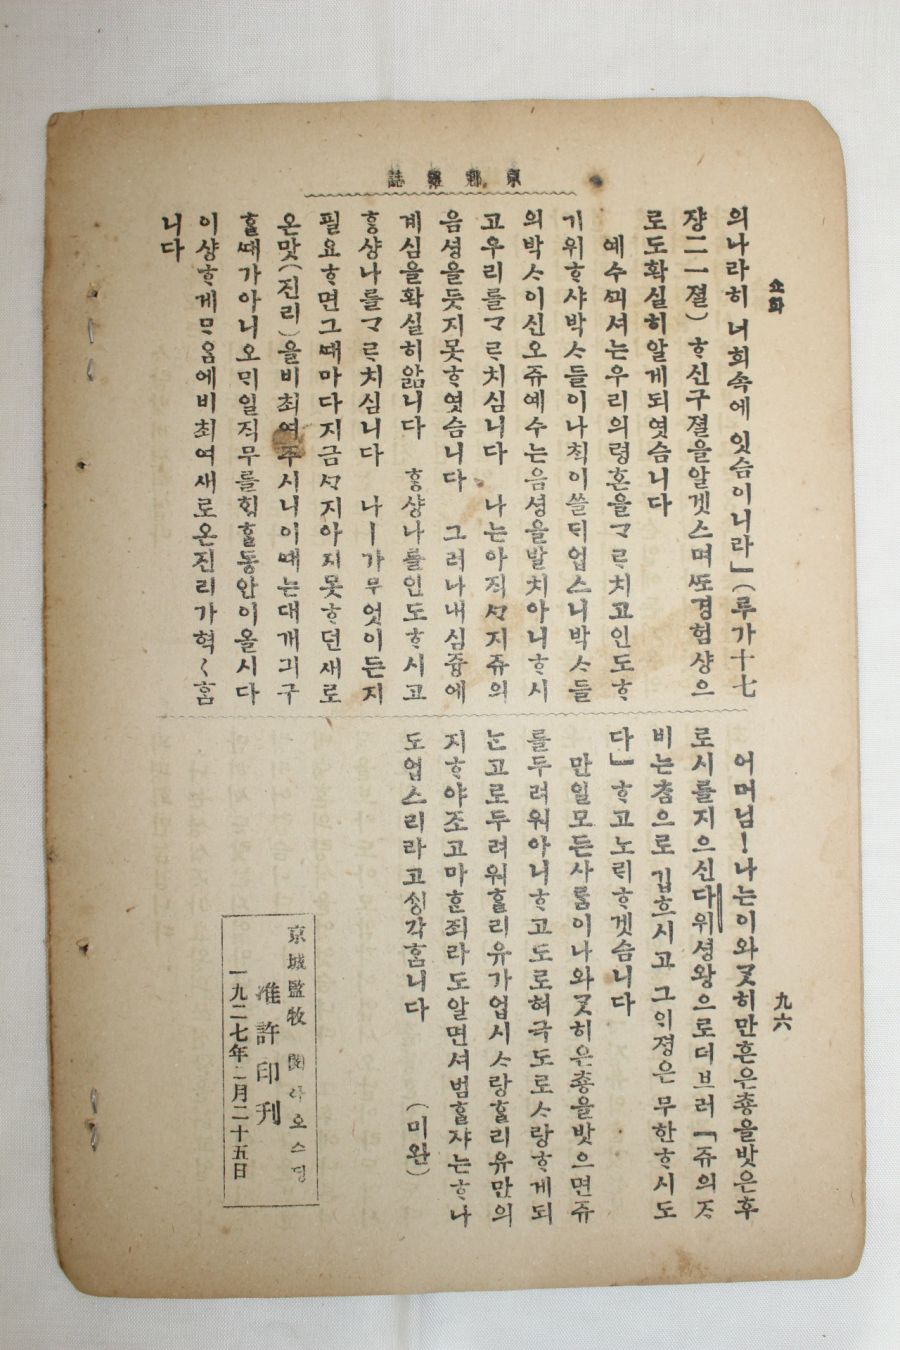 京鄕雜誌
쇼화
九六
의나라히 너희속에 잇슴이니라」(루가十七
쟝二一졀)ᄒᆞ신구졀을알겟스며ᄯᅩ경험샹으
로도확실히알게되엿슴니다
예수ᄭᅴ셔는우리의령혼을ᄀᆞᄅᆞ치고인도ᄒᆞ
기위ᄒᆞ샤박ᄉᆞ들이나ᄎᆡᆨ이쓸ᄃᆡ업스니박ᄉᆞ들
의박ᄉᆞ이신오쥬예수는음셩을발치아니ᄒᆞ시
고우리를ᄀᆞᄅᆞ치심니다 나는아직ᄭᆞ지쥬의
음셩을듯지못ᄒᆞ엿슴니다 그러나내심즁에
계심을확실히앎니다 ᄒᆞᆼ샹나를인도ᄒᆞ시고
ᄒᆞᆼ샹나를ᄀᆞᄅᆞ치심니다 나ㅣ가무엇이든지
필요ᄒᆞ면그ᄯᅢ마다지금ᄭᆞ지아지못ᄒᆞ던새로
온맛(진리)을비최여주시니이ᄯᅢ는대개긔구
ᄒᆞᆯᄯᅢ가아니오ᄆᆡ일직무를ᄒᆡᆼᄒᆞᆯ동안이올시다
이샹ᄒᆞ게ᄆᆞᄋᆞᆷ에비최여새로온진리가혁〱ᄒᆞᆷ
니다
어머님!나는이와ᄀᆞᆺ히만흔은춍을밧은후
로시를지으신다위셩왕으로더브러「쥬의ᄌᆞ
비는ᄎᆞᆷ으로깁흐시고그ᄋᆡ졍은무한ᄒᆞ시도
다」ᄒᆞ고노ᄅᆡᄒᆞ겟슴니다
만일모든사ᄅᆞᆷ이나와ᄀᆞᆺ히은춍을밧으면쥬
를두려워아니ᄒᆞ고도로혀극도로ᄉᆞ랑ᄒᆞ게되
ᄂᆞᆫ고로두려워ᄒᆞᆯ리유가업시ᄉᆞ랑ᄒᆞᆯ리유만의
지ᄒᆞ야조고마ᄒᆞᆫ죄라도알면셔범ᄒᆞᆯ쟈는ᄒᆞ나
도업스리라고ᄉᆡᆼ각ᄒᆞᆷ니다 (미완)
京城監牧 閔아오스딩
准許印刋
一九二七年二月二十五日